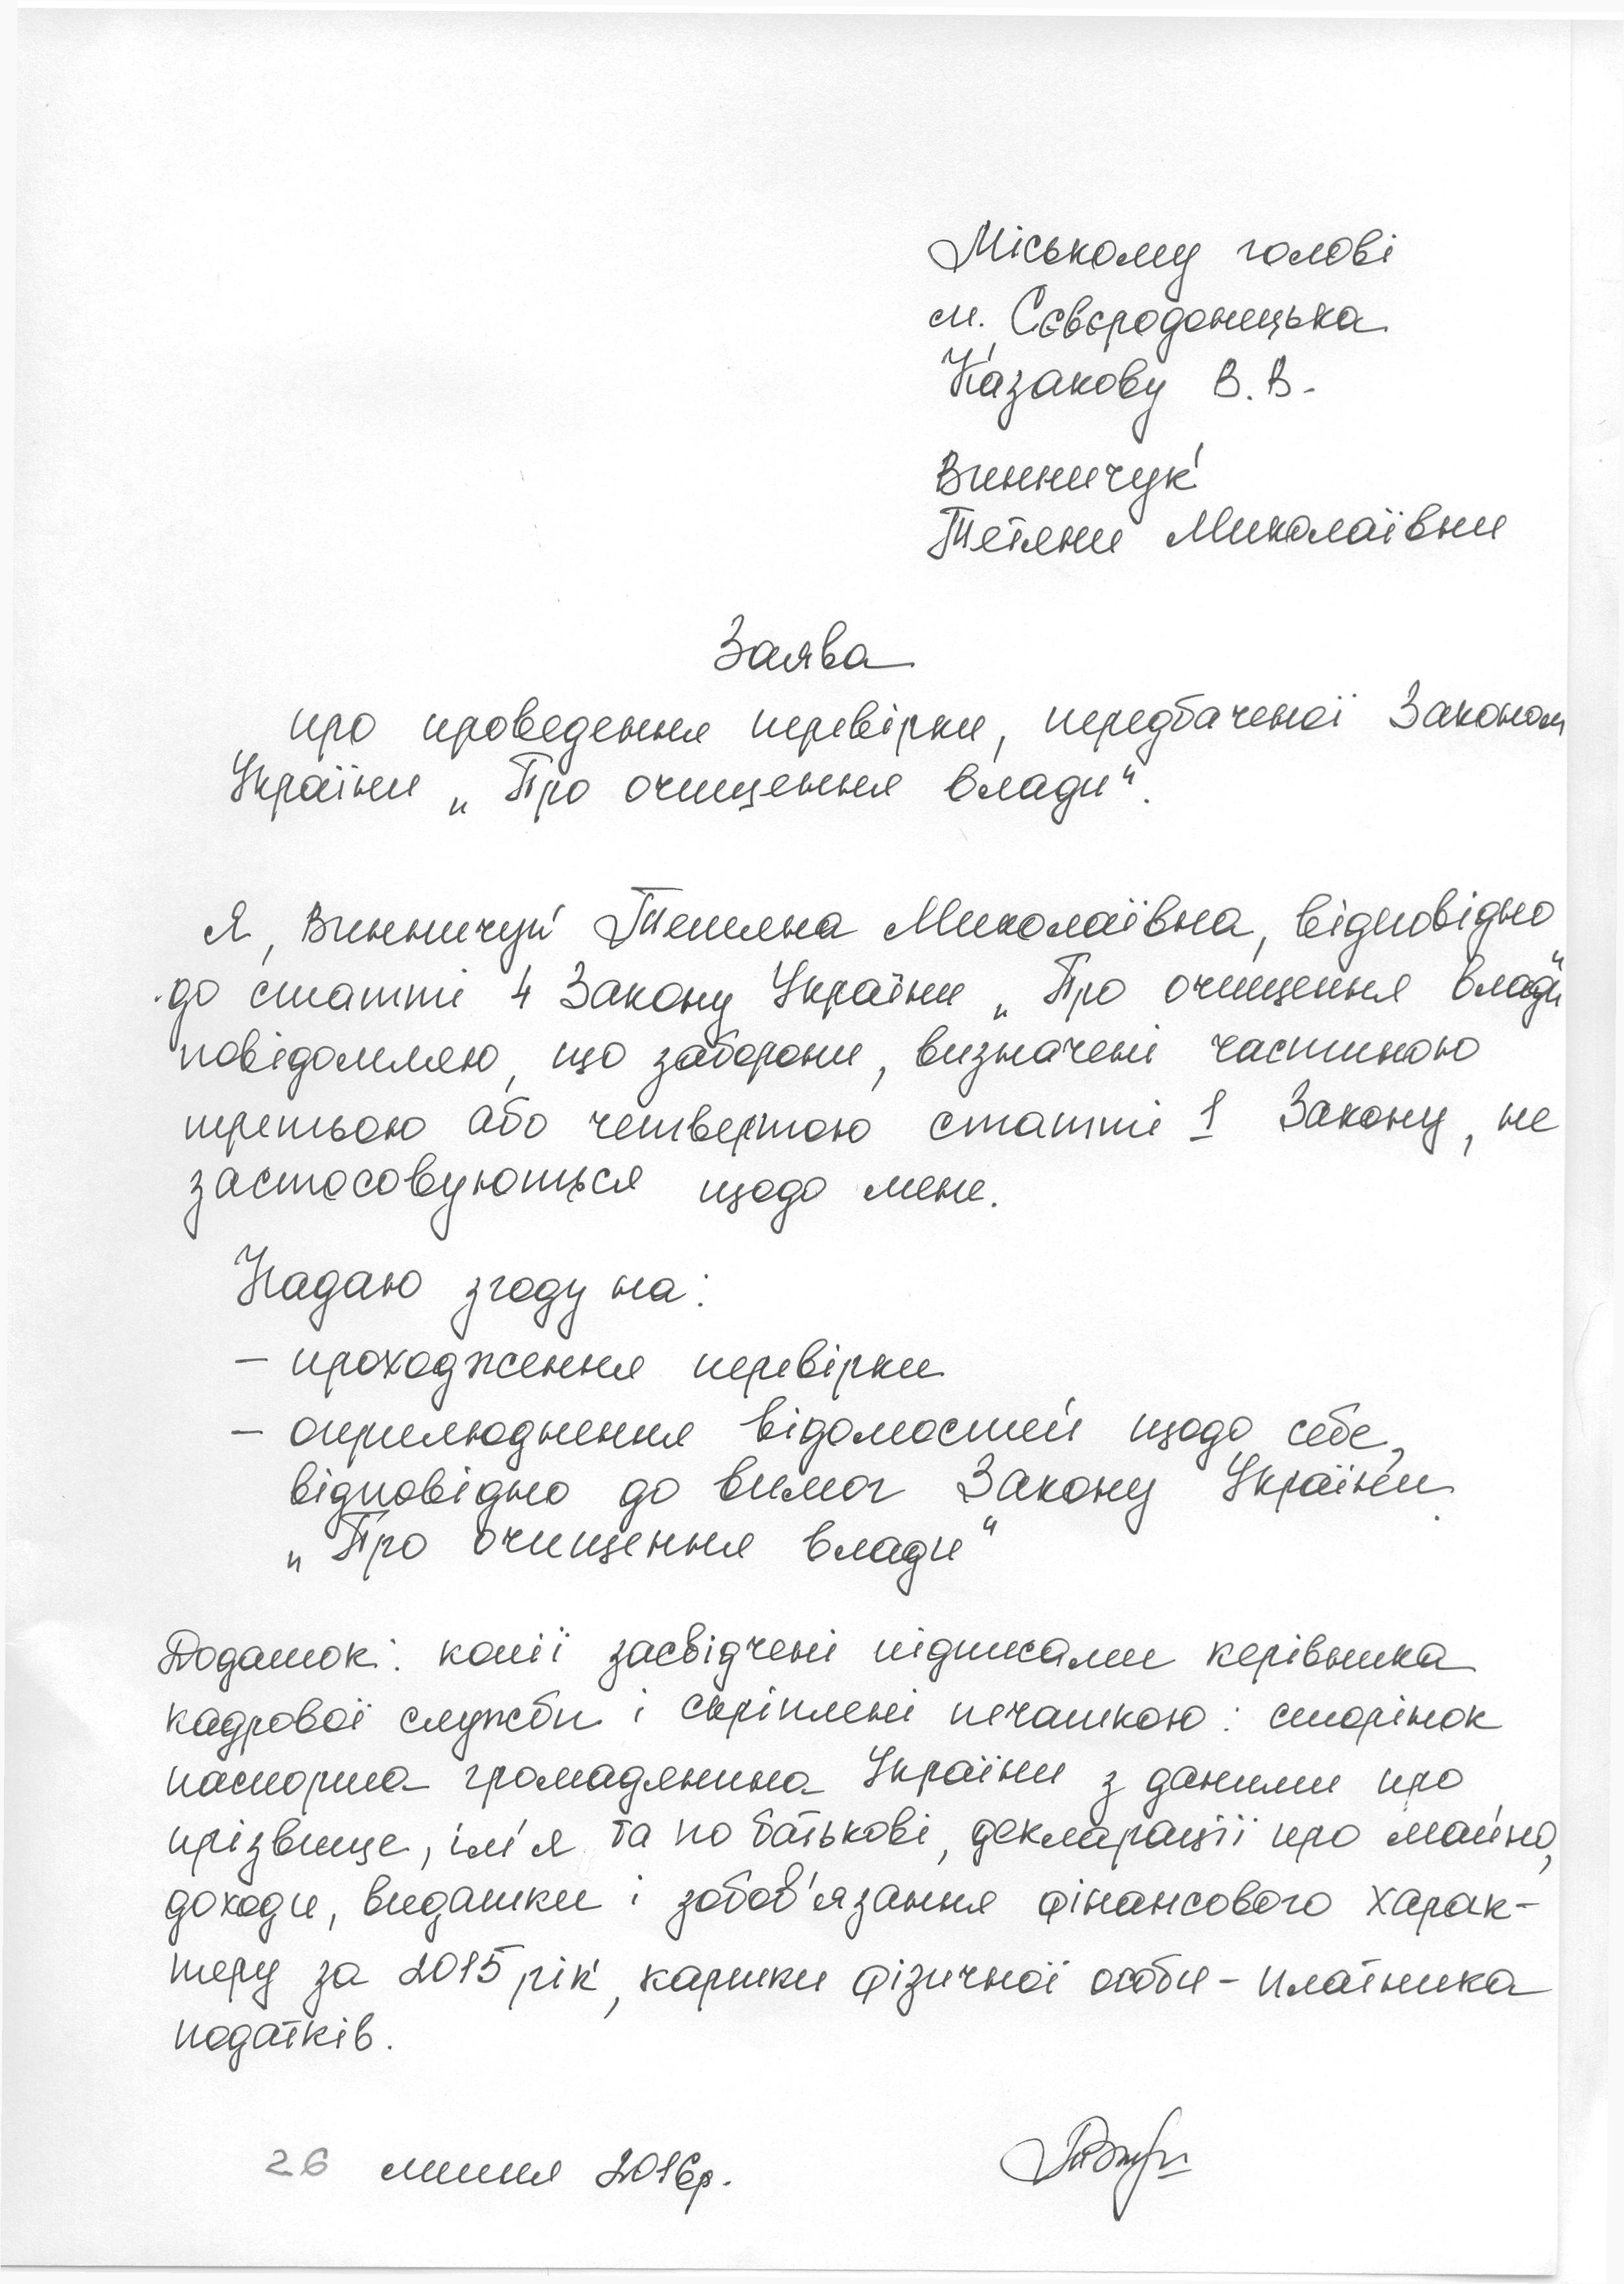 Міському голові
м. Сєвєродонецька
Казакову В.В.
Винничук
Тетяни Миколаївни
Заява
про проведення перевірки, передбаченої Законом
України „Про очищення влади“.
Я, Винничук Тетяна Миколаївна, відповідно
до статті 4 Закону України „Про очищення влади“
повідомляю, що заборони, визначені частиною
третьою або четвертою статті 1 Закону, не
застосовуються щодо мене.
Надаю згоду на:
– проходження перевірки
– оприлюднення відомостей щодо себе,
відповідно до вимог Закону України
„Про очищення влади“
Додаток: копії засвідчені підписами керівника
кадрової служби і скріплені печаткою: сторінок
паспорта громадянина України з даними про
прізвище, ім'я та по батькові, декларації про майно,
доходи, видатки і зобов'язання фінансового харак-
теру за 2015 рік, картки фізичної особи – платника
податків.
26 липня 2016р.